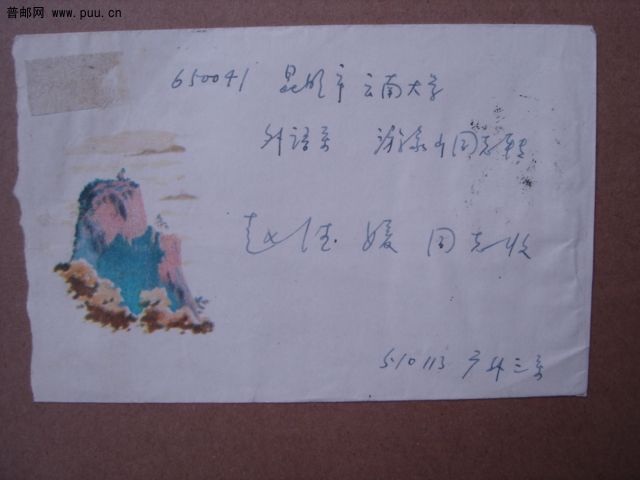 普邮网 www.puu.cn
650041 昆明市 云南大学
外语系 同志转
赵 媛 同志收
510113 广外三系